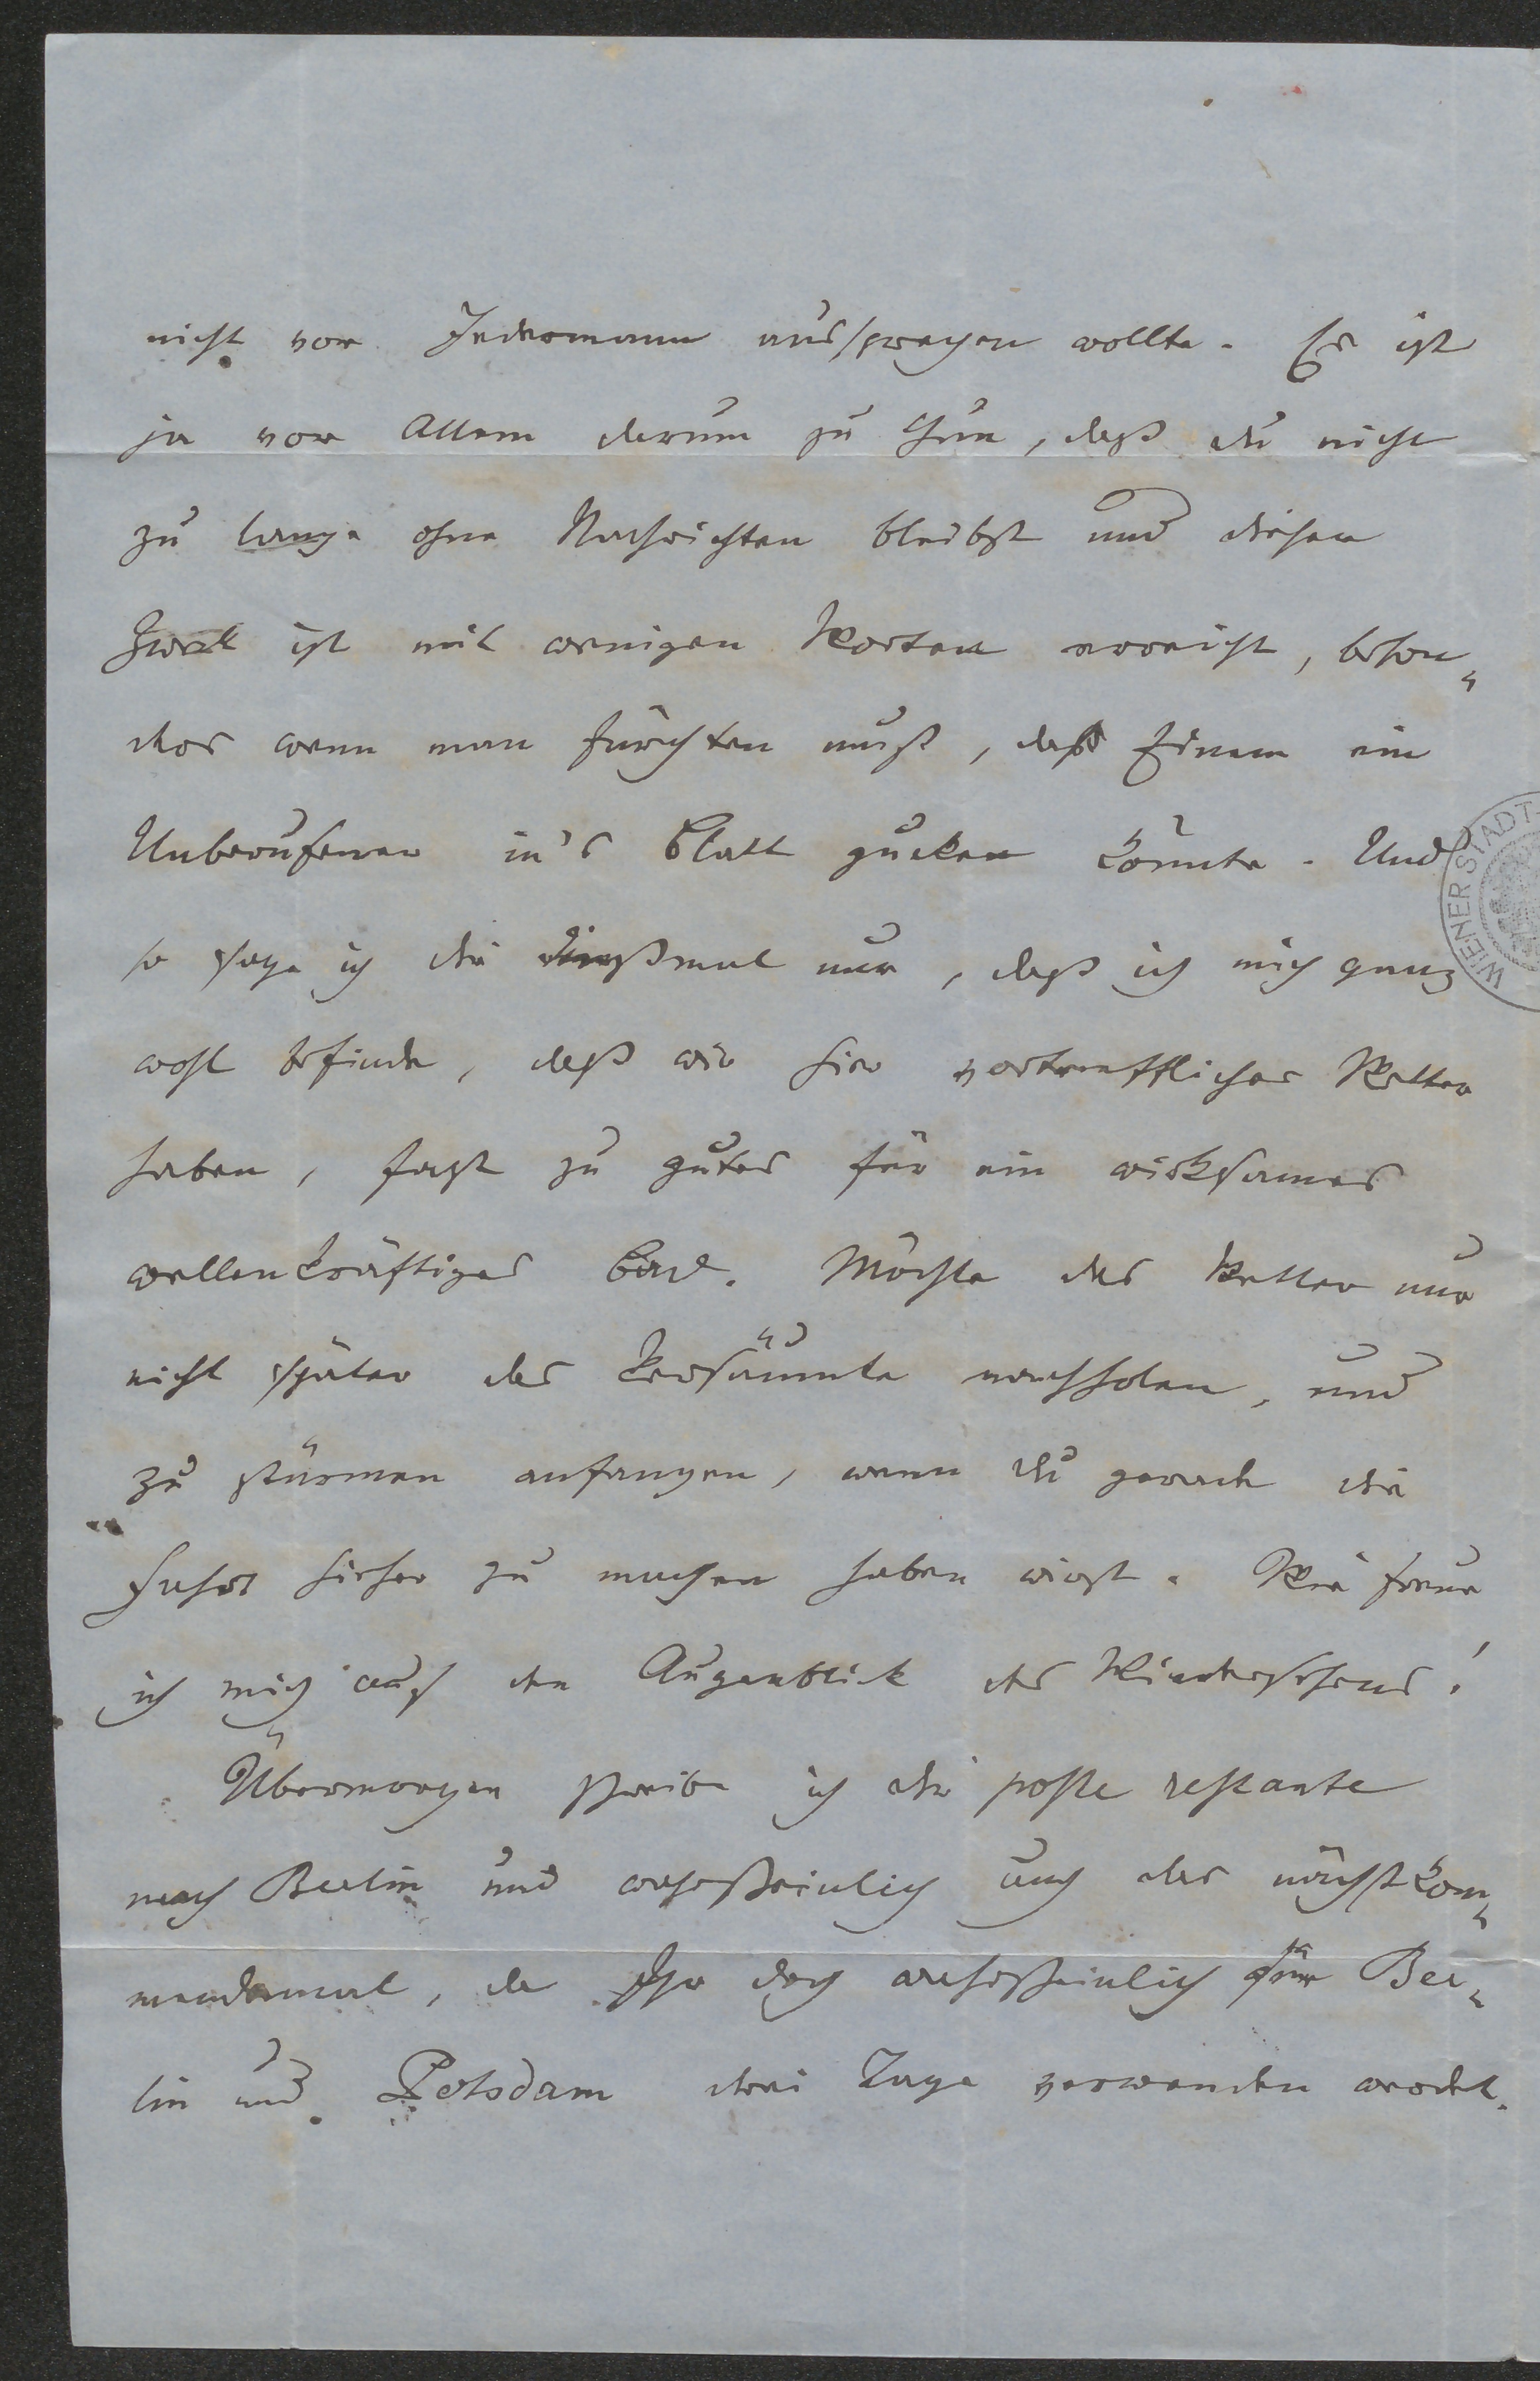 nicht vor Jedermann aussprechen wollte. Es ist
ja vor Allem darum zu thun, daß du nicht
zu lange ohne Nachrichten bleibst und diesen
Zweck ist mit wenigen Worten erreicht, beson„
ders wenn man fürchten muß, daß Einem ein
Unberufener in's Blatt gucken könnte. Und
so sage ich dir dießmal nur, daß ich mich ganz
wohl befinde, daß wir hier vortreffliches Wetter
haben, fast zu gutes für ein wirksames
wellenkräftiges Bad. Möchte das Wetter nur
nicht später das Versäumte nachholen, und
zu stürmen anfangen, wenn du gerade die
Fahrt hieher zu machen haben wirst. Wie freue
ich mich auf den Augenblick des Wiedersehens!
Übermorgen schreibe ich dir poste restante
nach Berlin und wahrscheinlich auch das nächstkom„
mendemal, da Ihr doch wahrscheinlich für Ber„
lin und Potsdam drei Tage verwenden werdet.
WIENER STADT-